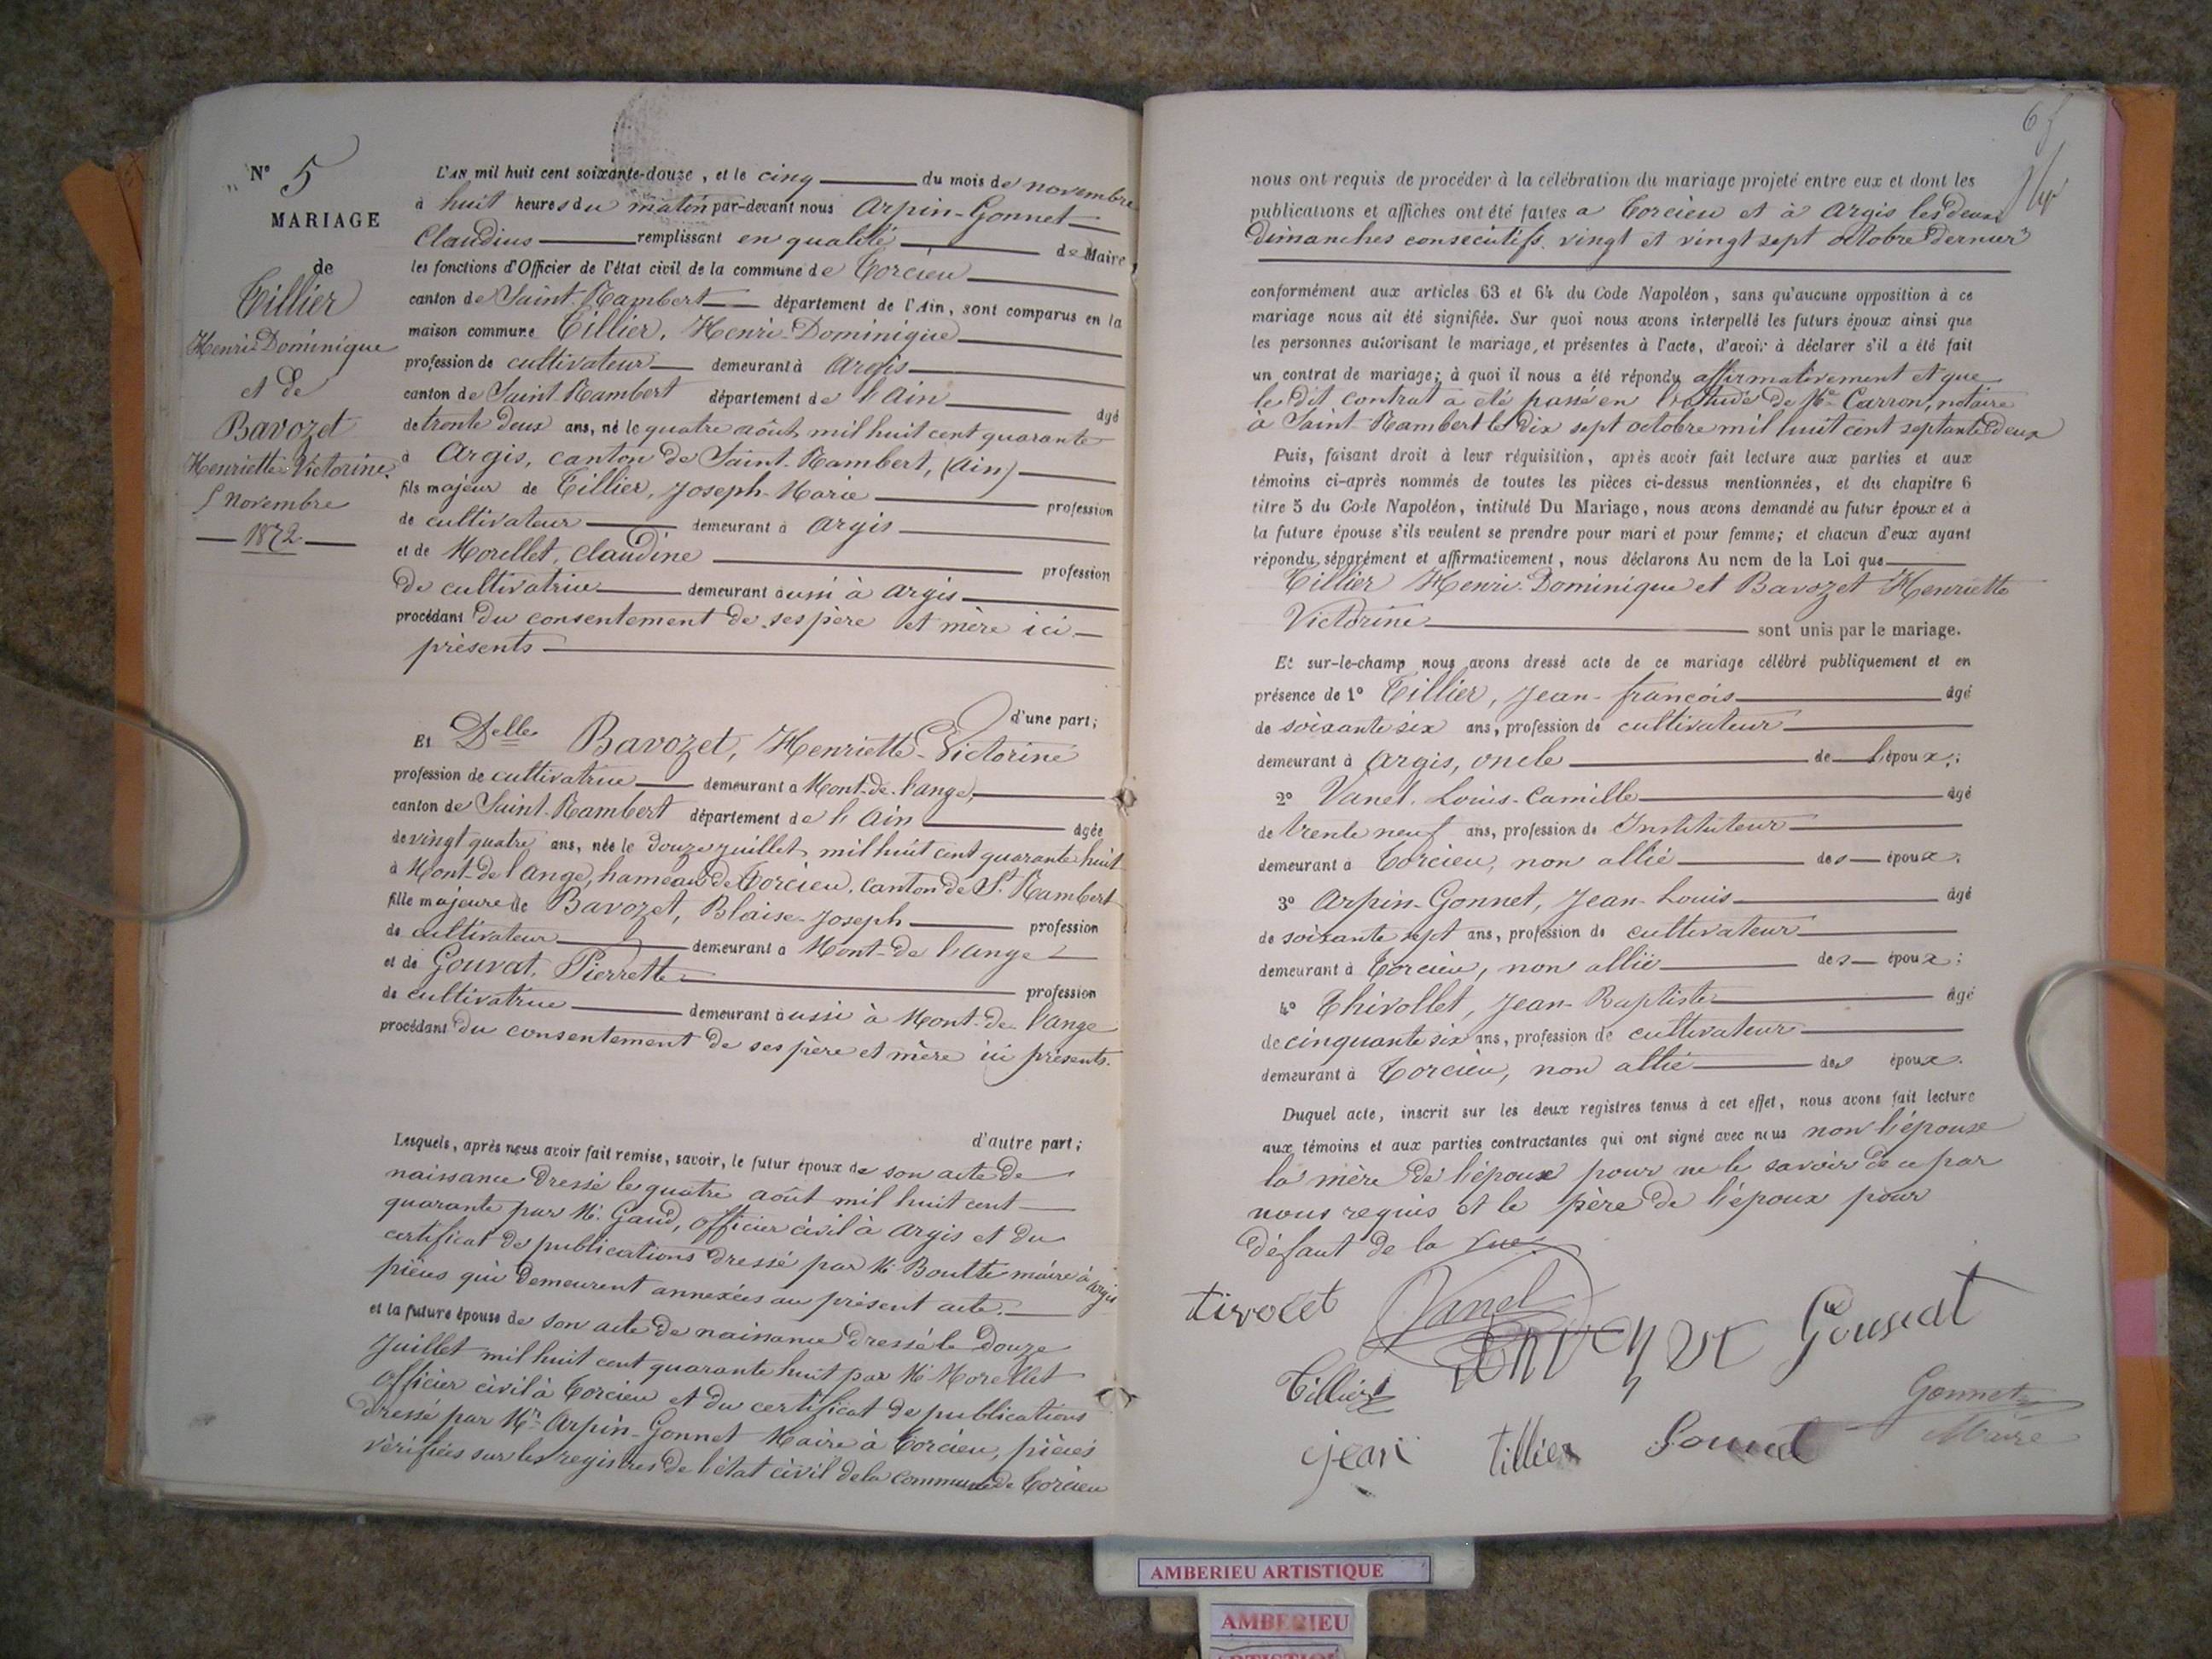 N° 5
MARIAGE
de
Tillier
Henri-Dominique
et de
Bavozet
Henriette-Victorine.
5 Novembre
1872
L'AN mil huit cent soixante-douze, et le cinq du mois de novembre
à huit heures du matin par-devant nous Arpin-Gonnet
Claudius remplissant en qualité de Maire,
les fonctions d'Officier de l'état civil de la commune de Torcieu
canton de Saint-Rambert département de l'Ain, sont comparus en la
maison commune Tillier, Henri-Dominique
profession de cultivateur demeurant à Argis
canton de Saint-Rambert département de l'Ain âgé
de trente deux ans, né le quatre août mil huit cent quarante
à Argis, canton de Saint-Rambert, (Ain)
fils majeur de Tillier, Joseph-Marie profession
de cultivateur demeurant à Argis
et de Morellet, Claudine profession
de cultivatrice demeurant aussi à Argis
procédant du consentement de ses père et mère ici
présents
d'une part;
Et Delle Bavozet, Henriette-Victorine
profession de cultivatrice demeurant à Mont-de-l'ange,
canton de Saint-Rambert département de l'Ain âgée
de vingt quatre ans, née le douze juillet mil huit cent quarante huit
à Mont-de l'ange, hameau de Torcieu, canton de St Rambert
fille majeure de Bavozet, Blaise-Joseph profession
de cultivateur demeurant à Mont-de l'ange
et de Gouvat, Pierrette profession
de cultivatrice demeurant aussi à Mont-de-l'ange
procédant du consentement de ses père et mère ici présents.
d'autre part;
Lesquels, après nous avoir fait remise, savoir, le futur époux de son acte de
naissance dressé le quatre août mil huit cent
quarante par M. Gaud, officier civil à Argis et du
certificat de publications dressé par M. Boutte maire à Argis
pièces qui demeurent annexées au présent acte.
et la future épouse de son acte de naissance dressé le douze
Juillet mil huit cent quarante huit par M Morellet
officier civil à Torcieu et du certificat de publications
dressé par Mr Arpin-Gonnet Maire à Torcieu, pièces
vérifiées sur les registres de l'état civil de la commune de Torcieu
nous ont requis de procéder à la célébration du mariage projeté entre eux et dont les
publications et affiches ont été faites a Torcieu et à Argis les deux
dimanches consécutifs vingt et vingt sept octobre dernier
conformément aux articles 63 et 64 du Code Napoléon, sans qu'aucune opposition à ce
mariage nous ait été signifiée. Sur quoi nous avons interpellé les futurs époux ainsi que
les personnes autorisant le mariage, et présentes à l'acte, d'avoir à déclarer s'il a été fait
un contrat de mariage; à quoi il nous a été répondu affirmativement et que
le dit contrat a été passé en l'étude de Me Carron, notaire
à Saint-Rambert le dix sept octobre mil huit cent septante deux
Puis, faisant droit à leur réquisition, après avoir fait lecture aux parties et aux
témoins ci-après nommés de toutes les pièces ci-dessus mentionnées, et du chapitre 6
titre 5 du Code Napoléon, intitulé Du Mariage, nous avons demandé au futur époux et à
la future épouse s'ils veulent se prendre pour mari et pour femme; et chacun d'eux ayant
répondu séparément et affirmativement, nous déclarons Au nom de la Loi que
Tillier Henri-Dominique et Bavozet Henriette
Victorine sont unis par le mariage.
Et sur-le-champ nous avons dressé acte de ce mariage célébré publiquement et en
présence de 1° Tillier, Jean-françois âgé
de soixante six ans, profession de cultivateur
demeurant à Argis, oncle de l'époux;
2° Vanel, Louis-Camille âgé
de trente neuf ans, profession de Instituteur
demeurant à Torcieu, non allié des époux;
3° Arpin-Gonnet, Jean-Louis âgé
de soixante sept ans, profession de cultivateur
demeurant à Torcieu, non allié des époux;
4° Thivollet, Jean-Baptiste âgé
de cinquante six ans, profession de cultivateur
demeurant à Torcieu, non allié des époux.
Duquel acte, inscrit sur les deux registres tenus à cet effet, nous avons fait lecture
aux témoins et aux parties contractantes qui ont signé avec nous non l'épouse
la mère de l'époux pour ne le savoir de ce par
nous requis et le père de l'époux pour
défaut de la vue.
tivolet Vanel Gouvat
Tillier Gonnet
Maire
jean tillier
AMBERIEU ARTISTIQUE
AMBERIEU
ARTISTIQUE